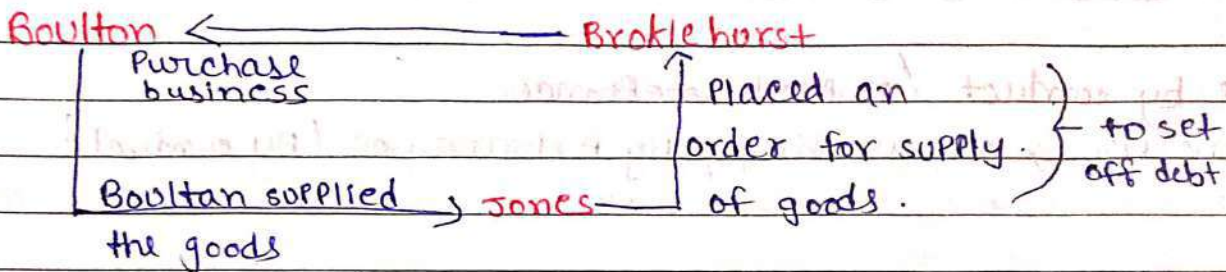 Boulton Broklehorst
Purchase
business
Placed an
order for supply.
of goods.
to set
off debt
Boultan supplied Jones
the goods